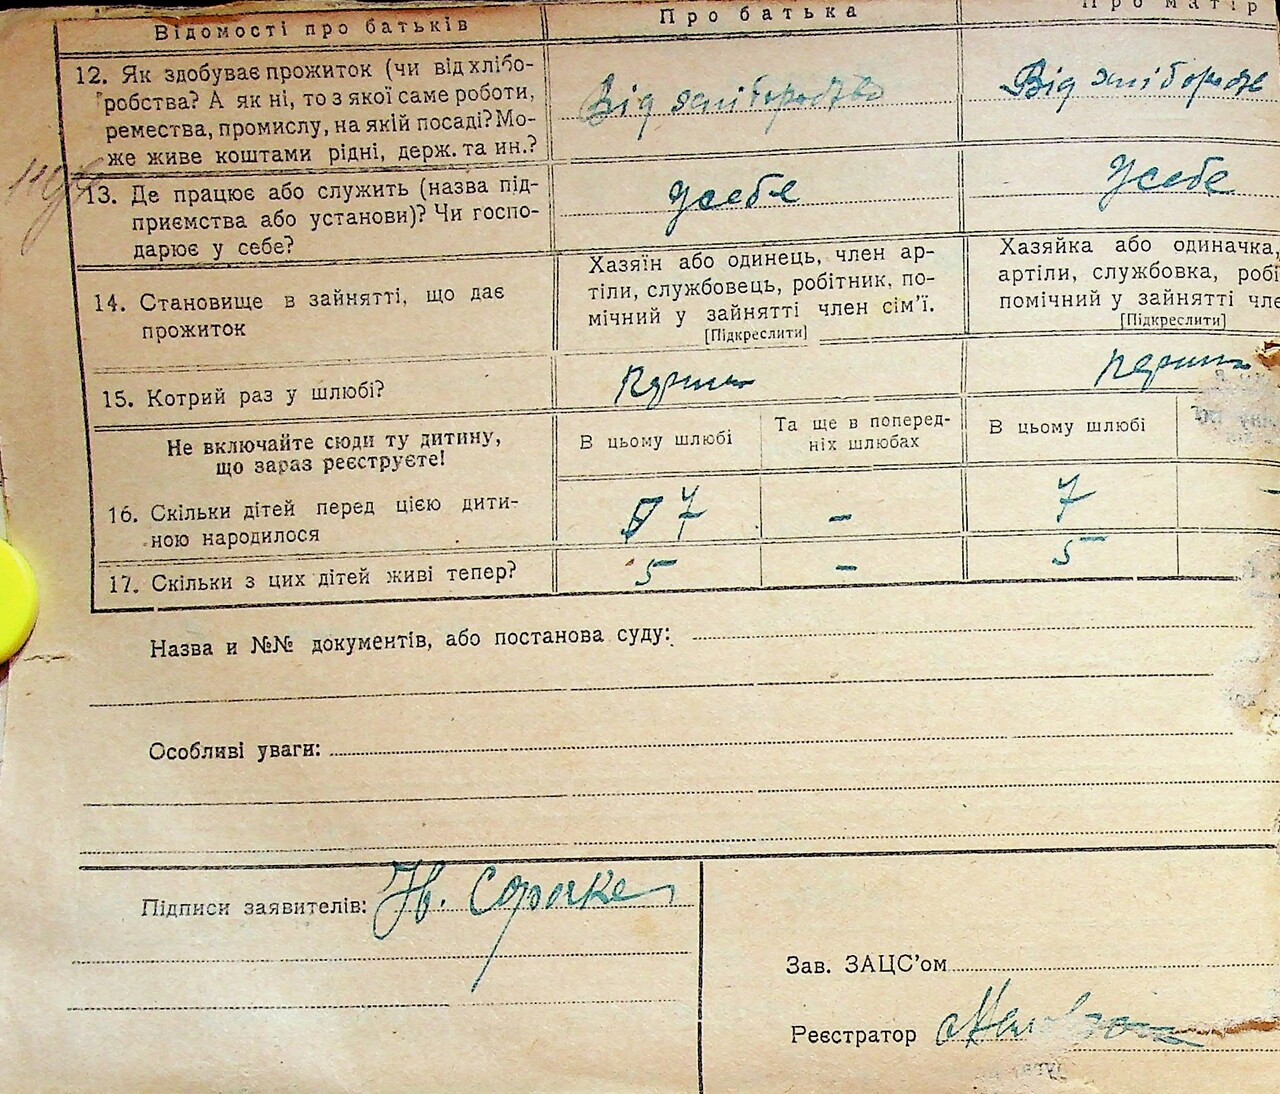 Відомості про батьків
Про батька
Про матір
12. Як здобуває прожиток (чи від хлібо-
робства? А як ні, то з якої саме роботи,
ремества, промислу, на якій посаді? Мо-
же живе коштами рідні, держ. та ин.?
Від
Від
13. Де працює або служить (назва під-
приємства або установи)? Чи госпо-
дарює у себе?
У себе
У себе
14. Становище в зайнятті, що дає
прожиток
Хазяїн або одинець, член ар-
тіли, службовець, робітник, по-
мічний у зайнятті член сім'ї.
[Підкреслити]
Хазяйка або одиначка,
артіли, службовка, робі
помічний у зайнятті чле
[Підкреслити]
15. Котрий раз у шлюбі?
Не включайте сюди ту дитину,
що зараз реєструєте!
В цьому шлюбі
Та ще в поперед-
ніх шлюбах
В цьому шлюбі
16. Скільки дітей перед цією дити-
ною народилося
7
-
7
17. Скільки з цих дітей живі тепер?
5
-
5
Назва и №№ документів, або постанова суду:
Особливі уваги:
Підписи заявителів:
Зав. ЗАЦС'ом
Реєстратор